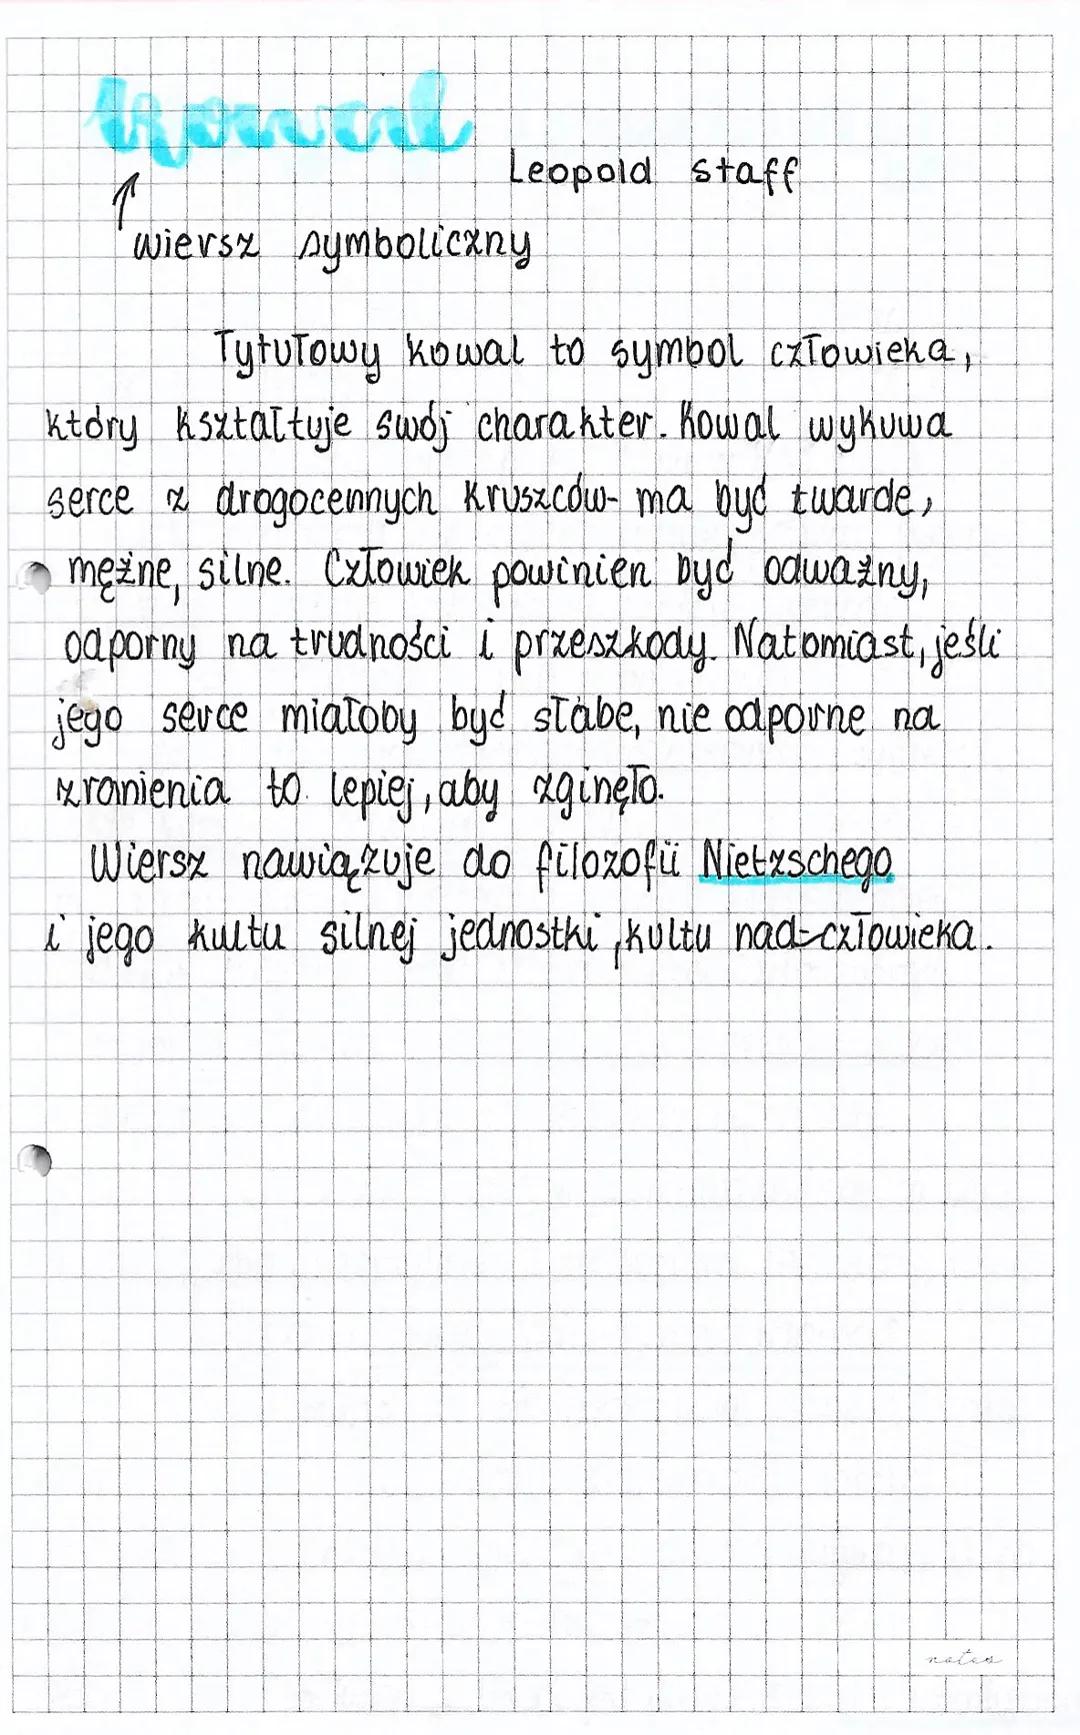 Kowal
Leopold Staff
wiersz symboliczny
Tytułowy kowal to symbol człowieka,
który kształtuje swój charakter. Kowal wykuwa
serce z drogocennych kruszców- ma być twarde,
mężne, silne. Człowiek powinien być odważny,
odporny na trudności i przeszkody. Natomiast, jeśli
jego serce miałoby być słabe, nie odporne na
zranienia to lepiej, aby zginęło.
Wiersz nawiązuje do filozofii Nietzschego
i jego kultu silnej jednostki, kultu nad-człowieka.
notes